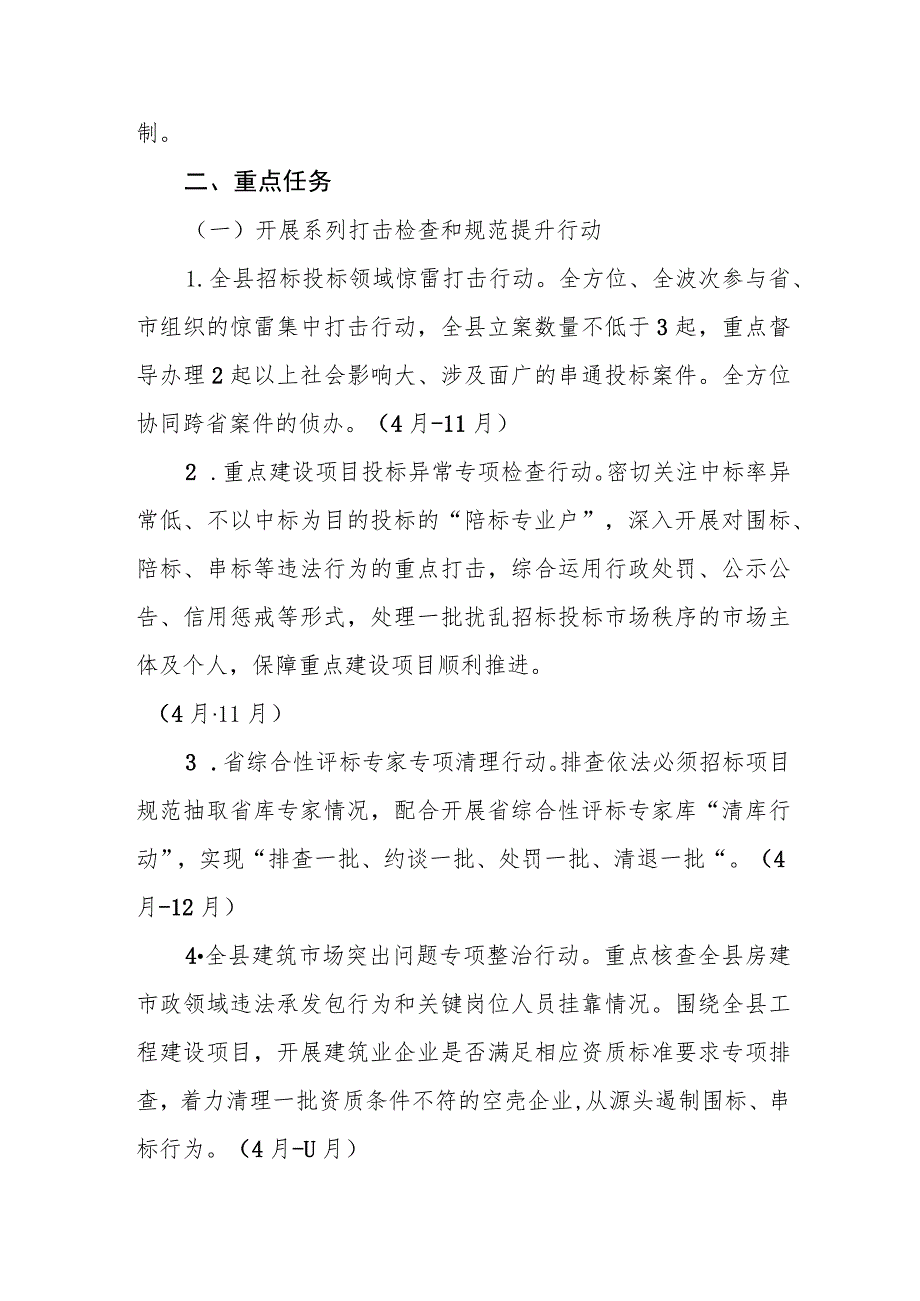 制。
二、重点任务
（一）开展系列打击检查和规范提升行动
1.全县招标投标领域惊雷打击行动。全方位、全波次参与省、
市组织的惊雷集中打击行动，全县立案数量不低于3起，重点督
导办理2起以上社会影响大、涉及面广的串通投标案件。全方位
协同跨省案件的侦办。（4月-11月）
2 .重点建设项目投标异常专项检查行动。密切关注中标率异
常低、不以中标为目的投标的“陪标专业户”，深入开展对围标、
陪标、串标等违法行为的重点打击，综合运用行政处罚、公示公
告、信用惩戒等形式，处理一批扰乱招标投标市场秩序的市场主
体及个人，保障重点建设项目顺利推进。
（4月·11月）
3 .省综合性评标专家专项清理行动。排查依法必须招标项目
规范抽取省库专家情况，配合开展省综合性评标专家库“清库行
动”，实现“排查一批、约谈一批、处罚一批、清退一批“。（4
月-12月）
4•全县建筑市场突出问题专项整治行动。重点核查全县房建
市政领域违法承发包行为和关键岗位人员挂靠情况。围绕全县工
程建设项目，开展建筑业企业是否满足相应资质标准要求专项排
查，着力清理一批资质条件不符的空壳企业,从源头遏制围标、串
标行为。（4月-U月）